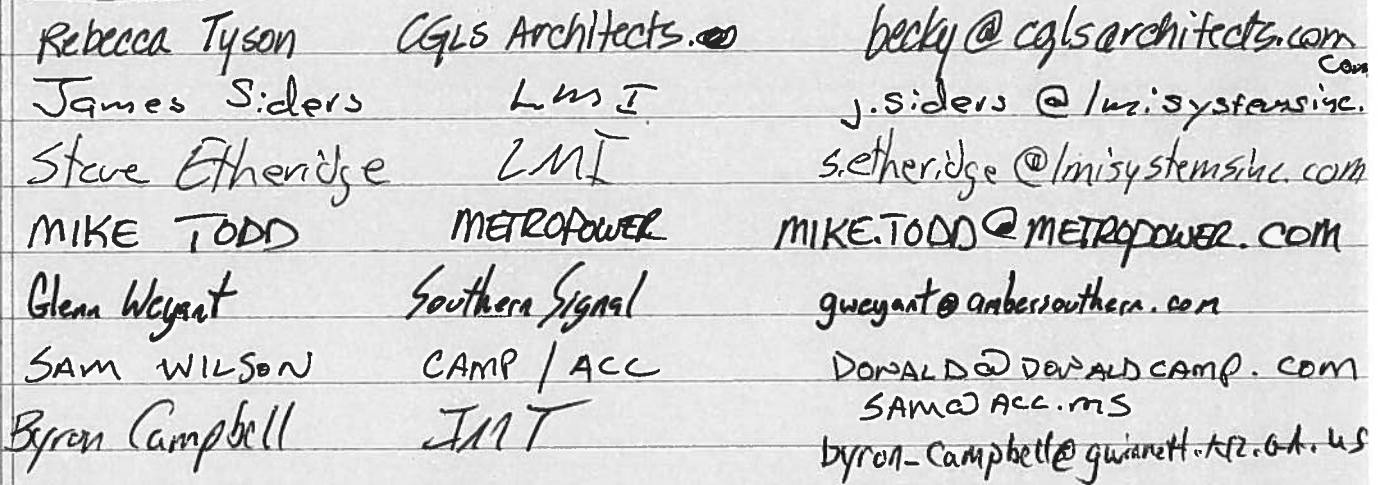 Rebecca Tyson CGLS Architects. becky@cglsarchitects.com
James Siders LMI j.siders@lmisystemsinc.com
Steve Etheridge LMI s.etheridge@lmisystemsinc.com
MIKE TODD METROPOWER MIKE.TODD@METROPOWER.COM
Glenn Weyant Southern Signal gweyant@ambersouthern.com
SAM WILSON CAMP / ACC DONALD@DONALDCAMP.COM
SAM@ACC.MS
Byron Campbell IMT byron_campbell@gwinnett.k12.ga.us